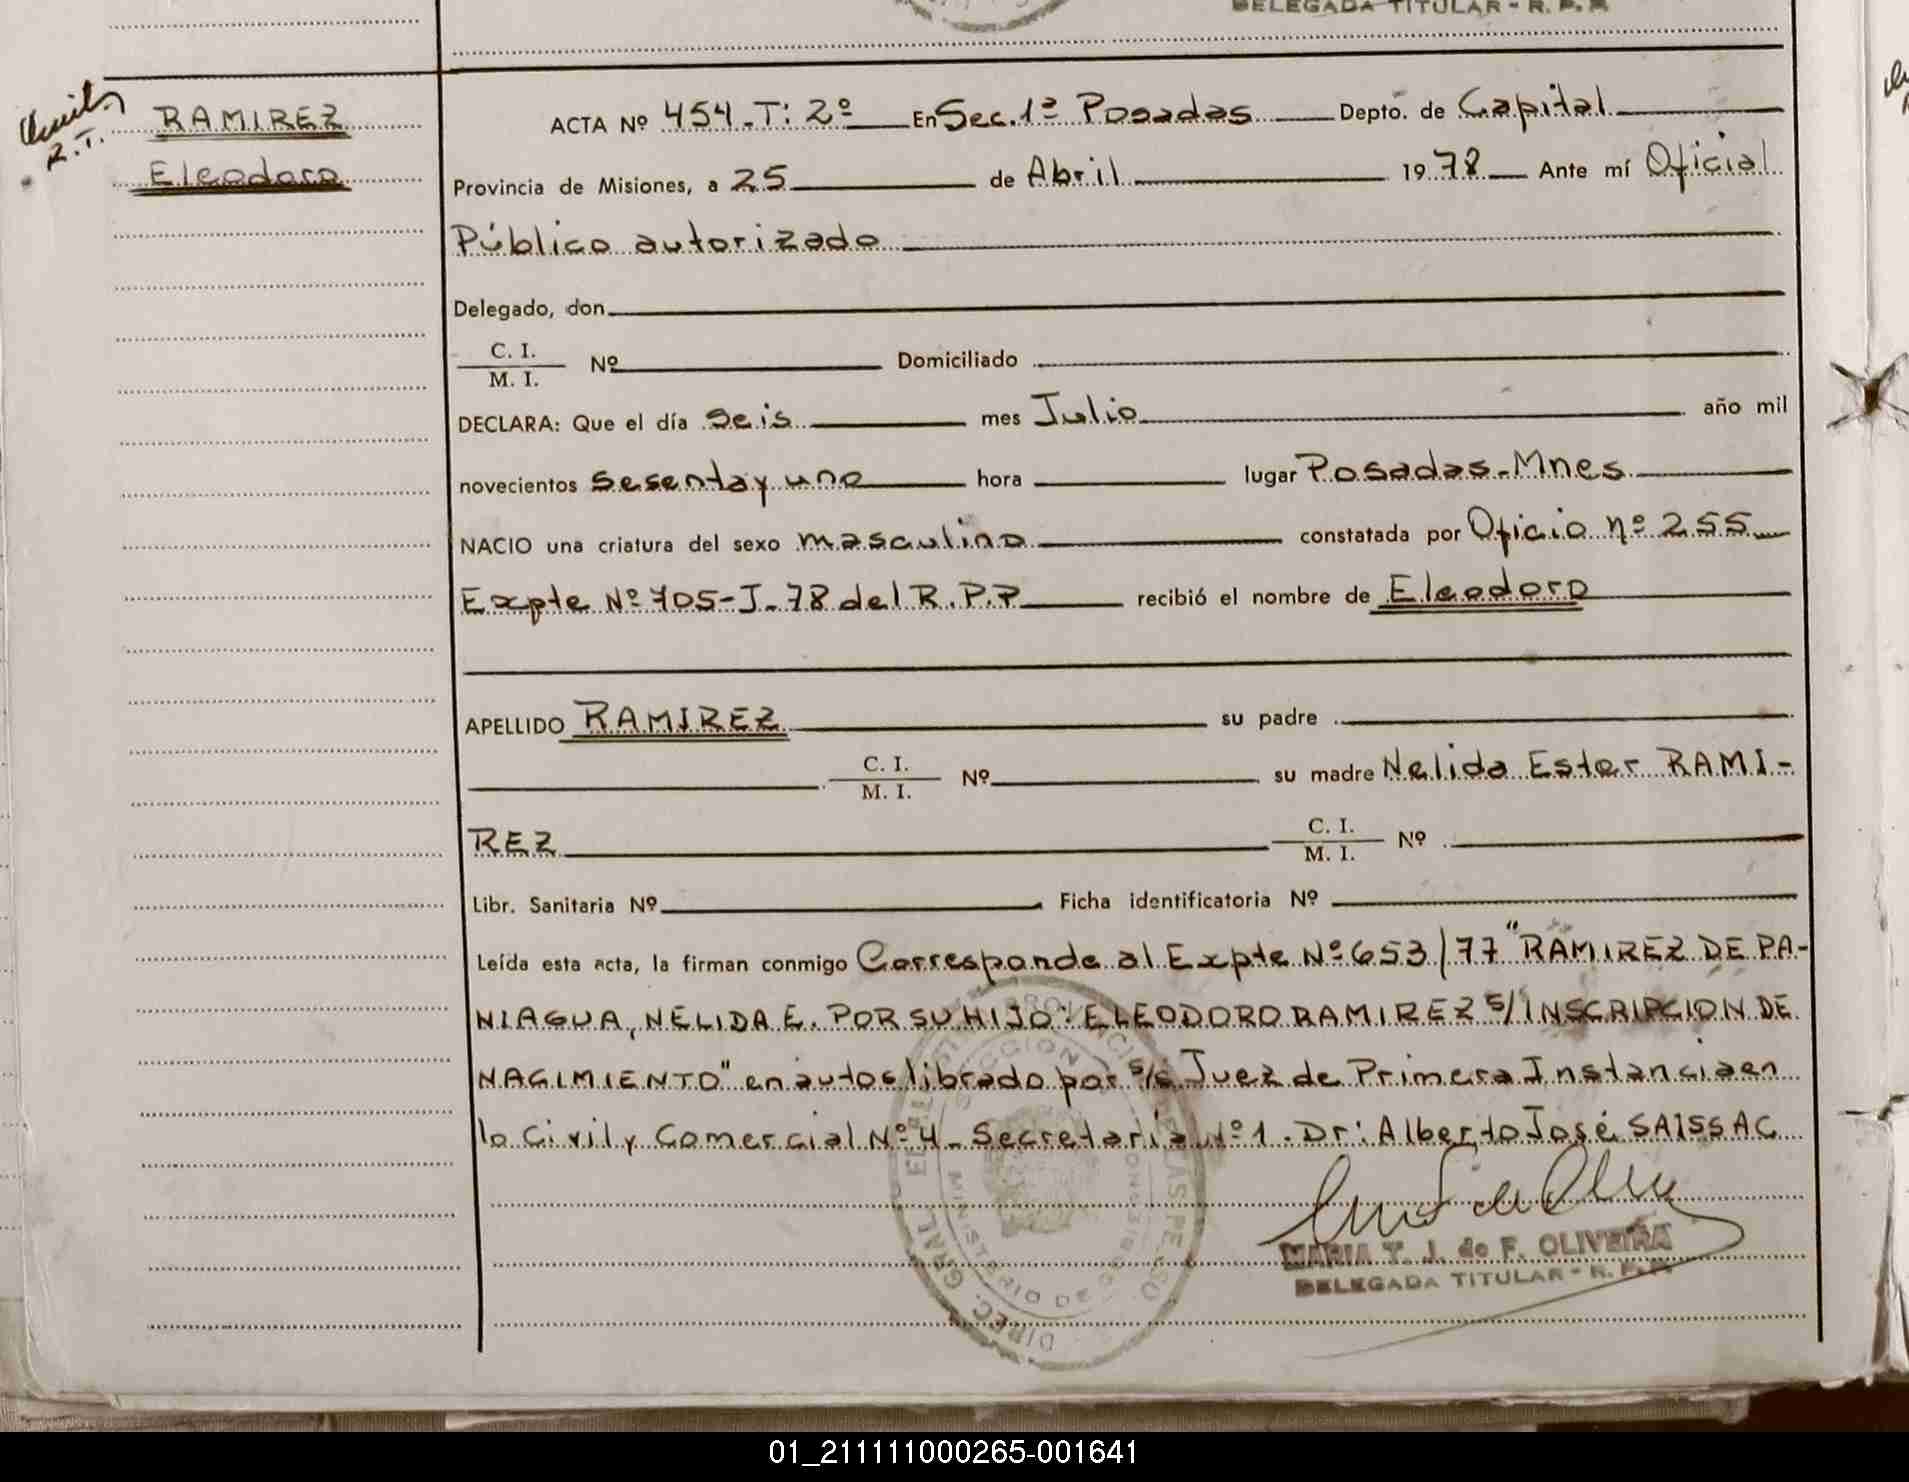 DELEGADA TITULAR - R. P. P.
R.T.
RAMIREZ
Eleodoro
ACTA Nº 454 - T: 2º En Sec. 1ª Posadas Depto. de Capital
Provincia de Misiones, a 25 de Abril 1978 Ante mí Oficial
Público autorizado
Delegado, don
C. I.
M. I. Nº Domiciliado
DECLARA: Que el día seis mes Julio año mil
novecientos sesenta y uno hora lugar Posadas - Mnes
NACIO una criatura del sexo masculino constatada por Oficio nº 255
Expte Nº 705-J-78 del R.P.P recibió el nombre de Eleodoro
APELLIDO RAMIREZ su padre
C. I.
M. I. Nº su madre Nelida Ester RAMI-
REZ C. I.
M. I. Nº
Libr. Sanitaria Nº Ficha identificatoria Nº
Leída esta acta, la firman conmigo Corresponde al Expte Nº 653/77 "RAMIREZ DE PA-
NIAGUA, NELIDA E. POR SU HIJO: ELEODORO RAMIREZ s/ INSCRIPCION DE
NACIMIENTO" en autos librado por s/s Juez de Primera Instancia en
lo Civil y Comercial Nº 4 - Secretaria Nº 1. Dr: Alberto José SAISSAC
MARIA T. J. de F. OLIVEIRA
DELEGADA TITULAR - R. P. P.
DIREC. GRAL.
01_211111000265-001641